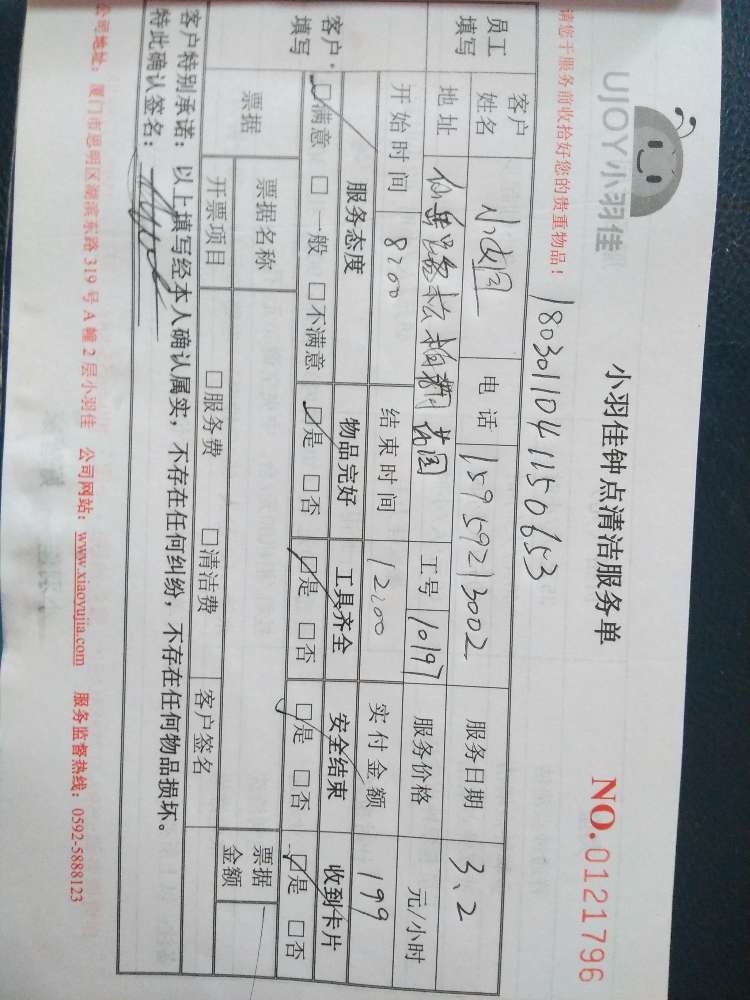 UJOY小羽佳
小羽佳钟点清洁服务单
NO.0121796
请您于服务前收拾好您的贵重物品！
1803011041150653
员工填写
客户姓名 电话 15959213002 服务日期 3、2
地址 仙岳路松柏 花园 工号 10197 服务价格 元/小时
开始时间 8:00 结束时间 12:00 实付金额 199
客户填写
服务态度 物品完好 工具齐全 安全结束 收到卡片
☑满意 □一般 □不满意 ☑是 □否 ☑是 □否 ☑是 □否 ☑是 □否
票据 票据名称 票据金额
开票项目 □服务费 □清洁费 客户签名
客户特别承诺：以上填写经本人确认属实，不存在任何纠纷，不存在任何物品损坏。
特此确认签名：
公司地址：厦门市思明区湖滨东路319号A幢2层小羽佳 公司网站：www.xiaoyujia.com 服务监督热线：0592-5888123